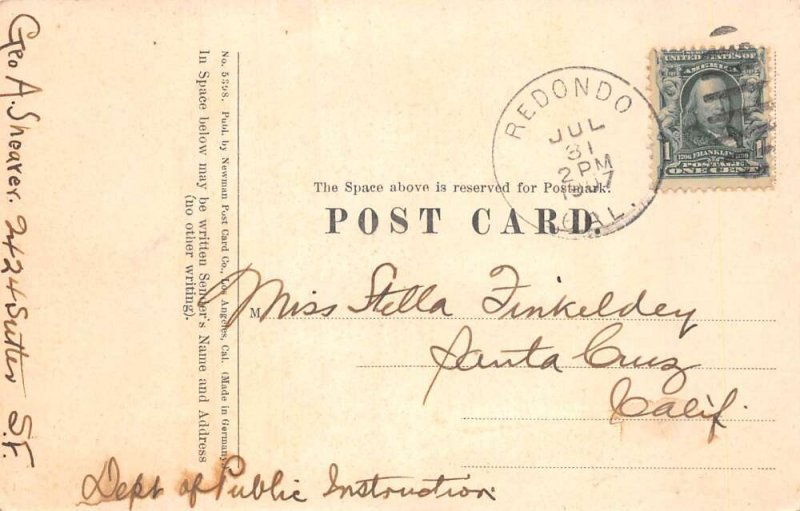 Geo A. Shearer. 2424 Sutter S.F.
In Space below may be written Sender's Name and Address
(no other writing).
No. 5398. Publ. by Newman Post Card Co., Los Angeles, Cal. (Made in Germany)
REDONDO
JUL
31
2 PM
CAL.
UNITED STATES OF
AMERICA
FRANKLIN
1 POSTAGE 1
ONE CENT
The Space above is reserved for Postmark.
POST CARD.
M
Miss Stella Finkeldey
Santa Cruz
Calif.
Dept of Public Instruction